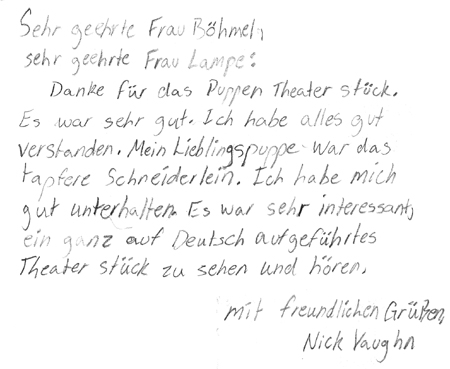 Sehr geehrte Frau Böhmel,
sehr geehrte Frau Lampe:
Danke für das Puppen Theater stück.
Es war sehr gut. Ich habe alles gut
verstanden. Mein Lieblingspuppe war das
tapfere Schneiderlein. Ich habe mich
gut unterhalten. Es war sehr interessant,
ein ganz auf Deutsch aufgeführtes
Theater stück zu sehen und hören.
mit freundlichen Grüßen,
Nick Vaughn